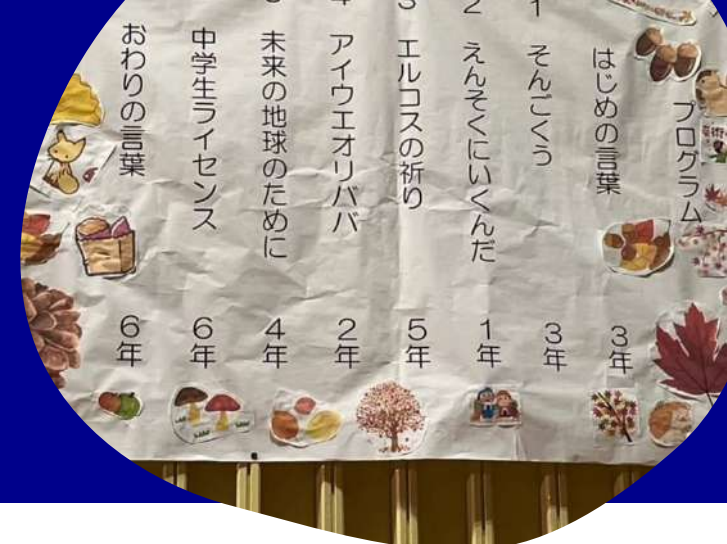 プログラム
はじめの言葉 3年
1 そんごくう 3年
2 えんそくにいくんだ 1年
3 エルコスの祈り 5年
4 アイウエオリババ 2年
未来の地球のために 4年
中学生ライセンス 6年
おわりの言葉 6年